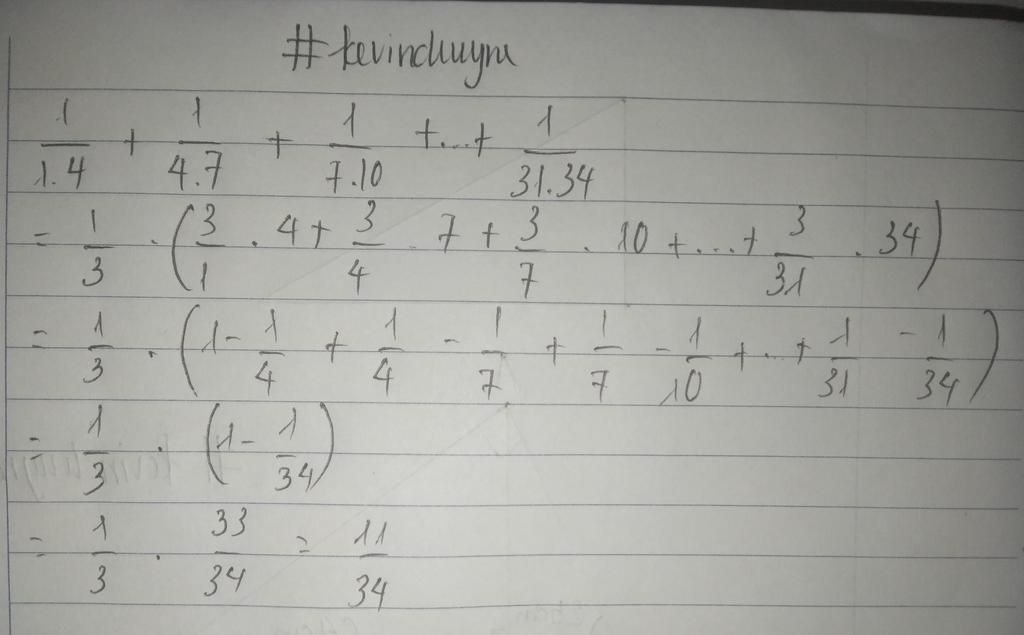 #kevinchuym
1/1.4 + 1/4.7 + 1/7.10 +...+ 1/31.34
= 1/3 . (3/1 . 4 + 3/4 . 7 + 3/7 . 10 +...+ 3/31 . 34)
= 1/3 . (1 - 1/4 + 1/4 - 1/7 + 1/7 - 1/10 +...+ 1/31 - 1/34)
= 1/3 . (1 - 1/34)
= 1/3 . 33/34 = 11/34